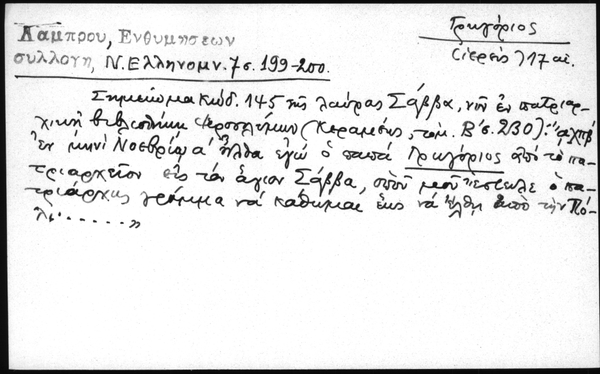 Λάμπρου, Ενθυμήσεων
συλλογή, Ν. Ελληνομν. 7 σ. 199-200.
Γρηγόριος
(ἱερεὺς) 17 αἰ.
Σημείωμα Κώδ. 145 τῆς λαύρας Σάββα, νῦν ἐν πατριαρ-
χικῇ βιβλιοθήκῃ Ἱεροσολύμων (Κεραμεύς, τόμ. Β' σ. 230): "αχπβ
ἐν μηνὶ Νοεβρίῳ α ἦλθα ἐγὼ ὁ παπᾶ Γρηγόριος ἀπὸ τὸ πα-
τριαρχεῖον εἰς τὸν ἅγιον Σάββα, ὁποῦ μοῦ ἔστειλε ὁ πα-
τριάρχης γράμμα νὰ κάθωμαι ἕως νὰ ἔλθῃ ἀπὸ τὴν Πό-
λι......"